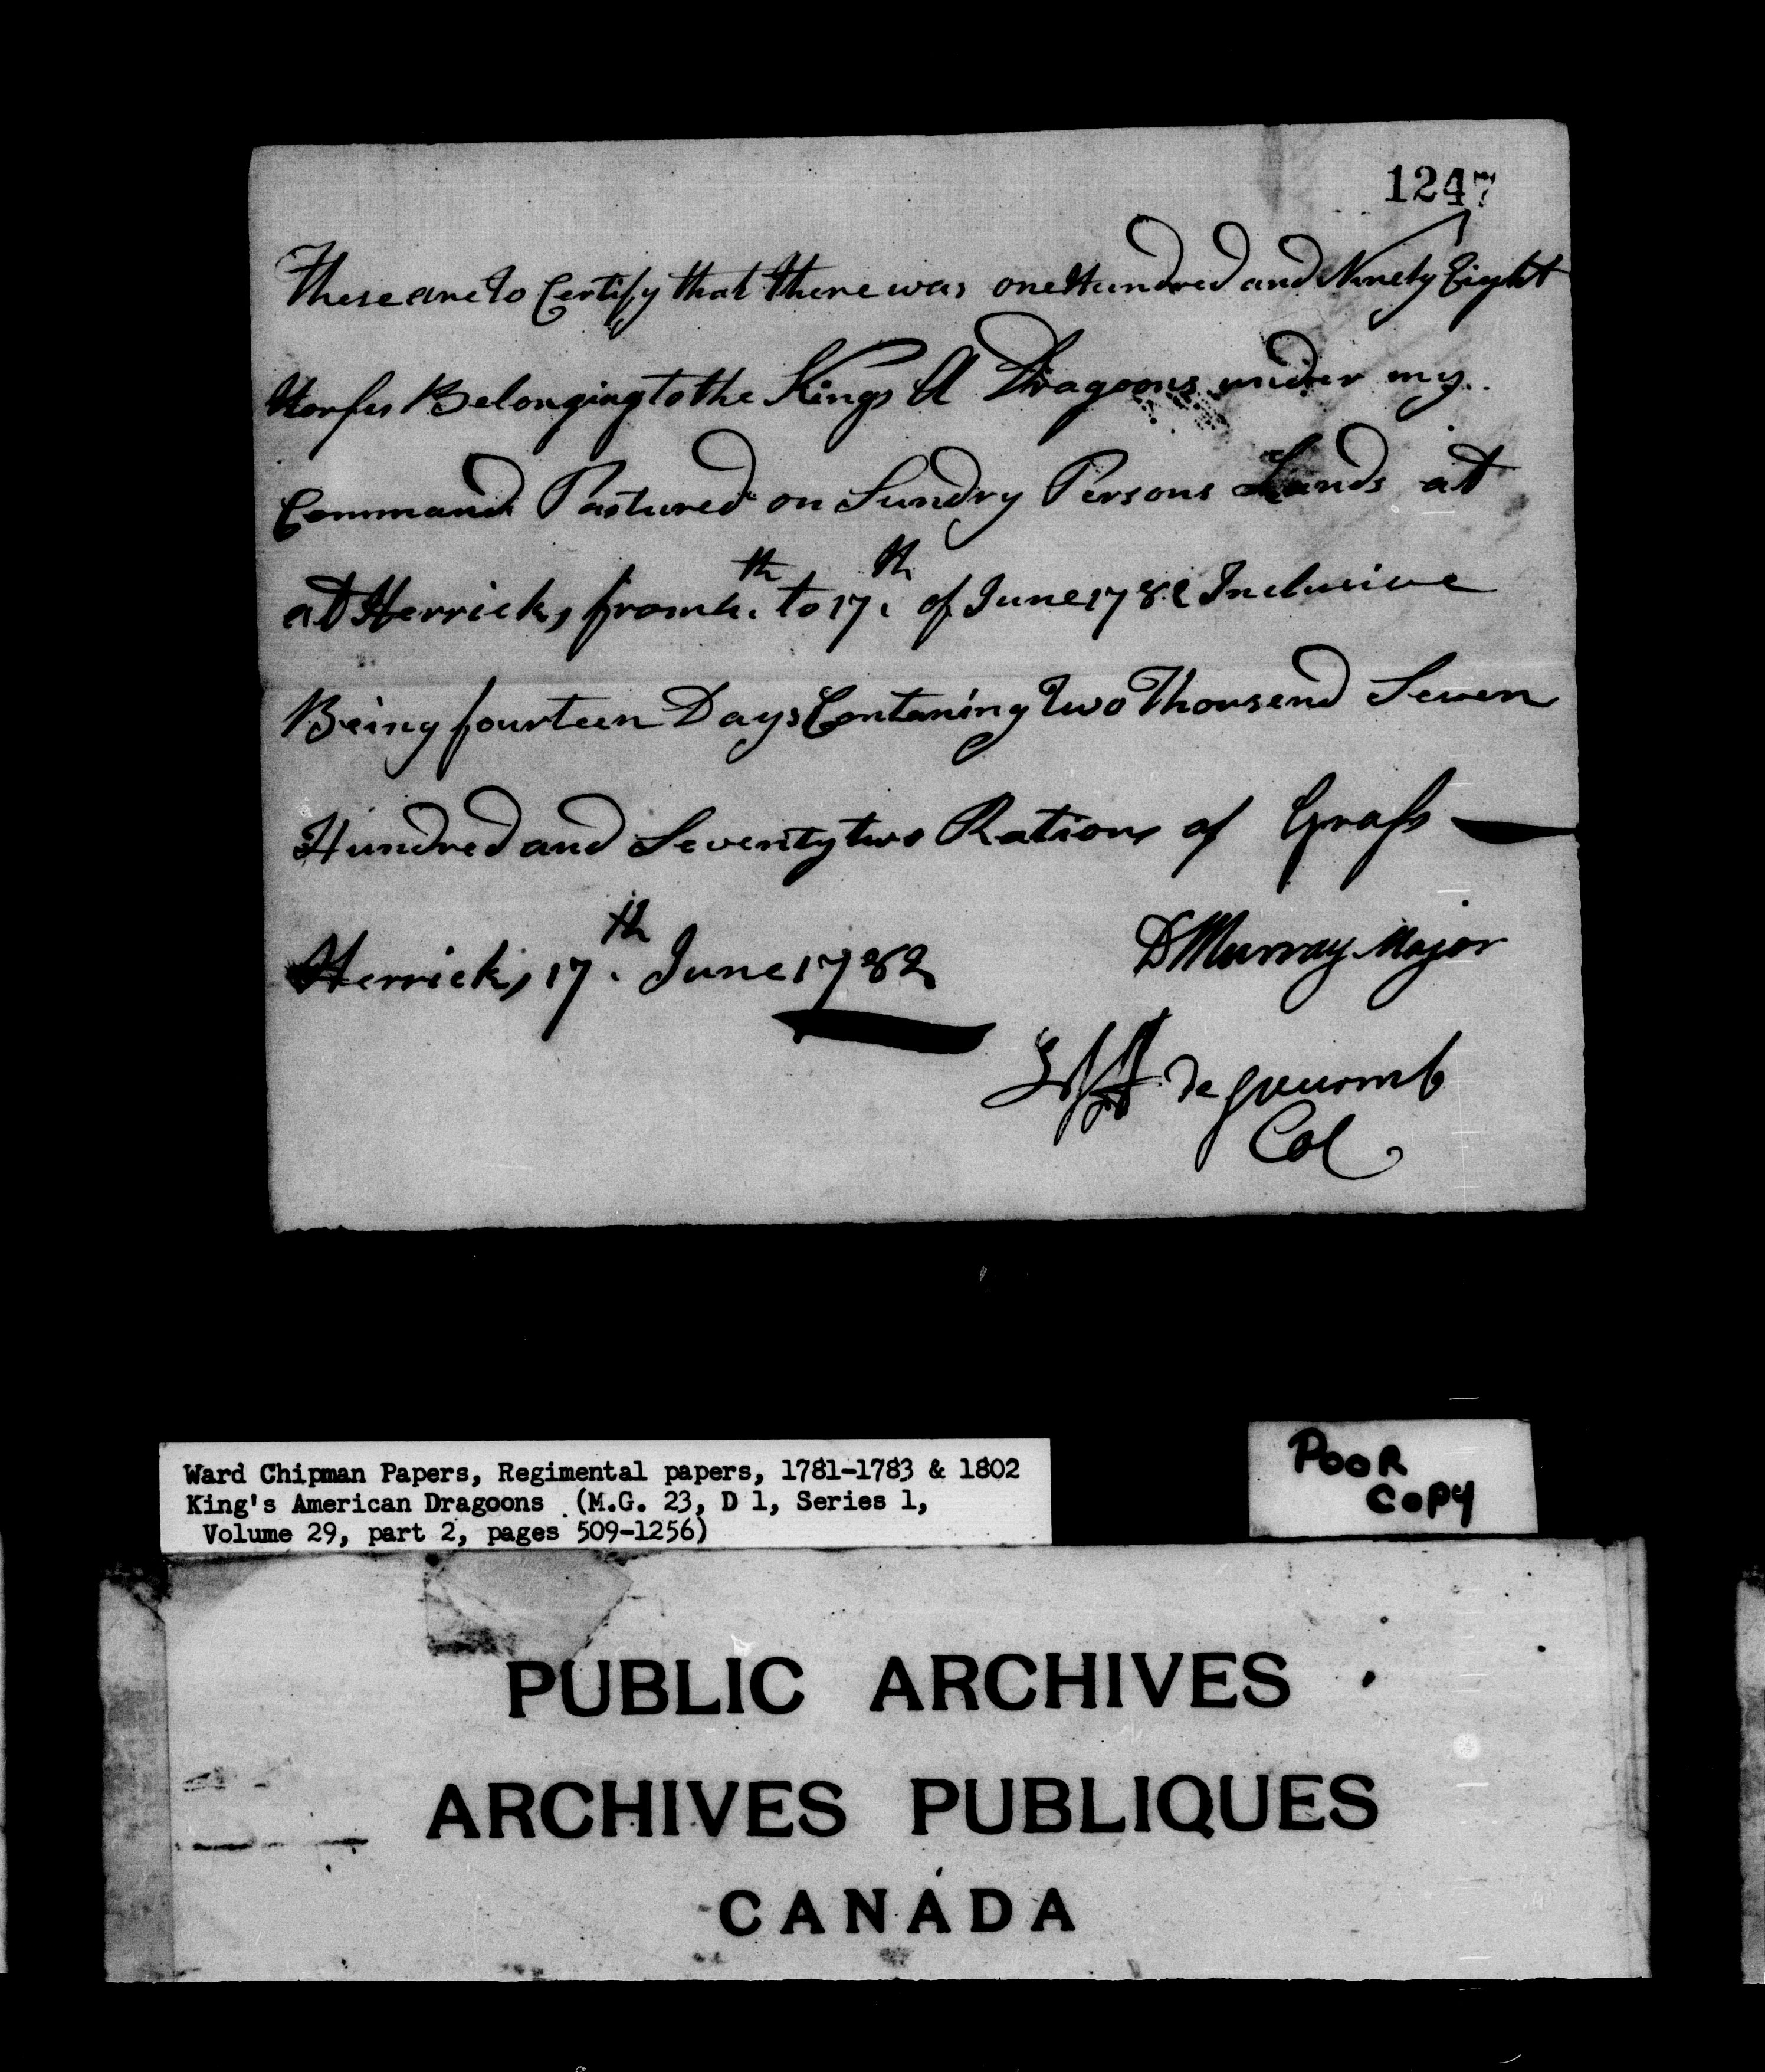 1247
These are to Certify that there was one Hundred and Ninety Eight
Horses Belonging to the Kings A Dragoons under my
Command Pastured on Sundry Persons Lands at
at Herricks, from 4th. to 17th. of June 1782 Inclusive
Being fourteen Days Contaning Two Thousend Seven
Hundred and Seventy two Rations of Grass
Herricks, 17th. June 1782
D Murray Major
Col
Ward Chipman Papers, Regimental papers, 1781-1783 & 1802
King's American Dragoons (M.G. 23, D 1, Series 1,
Volume 29, part 2, pages 509-1256)
POOR
COPY
PUBLIC ARCHIVES
ARCHIVES PUBLIQUES
CANADA